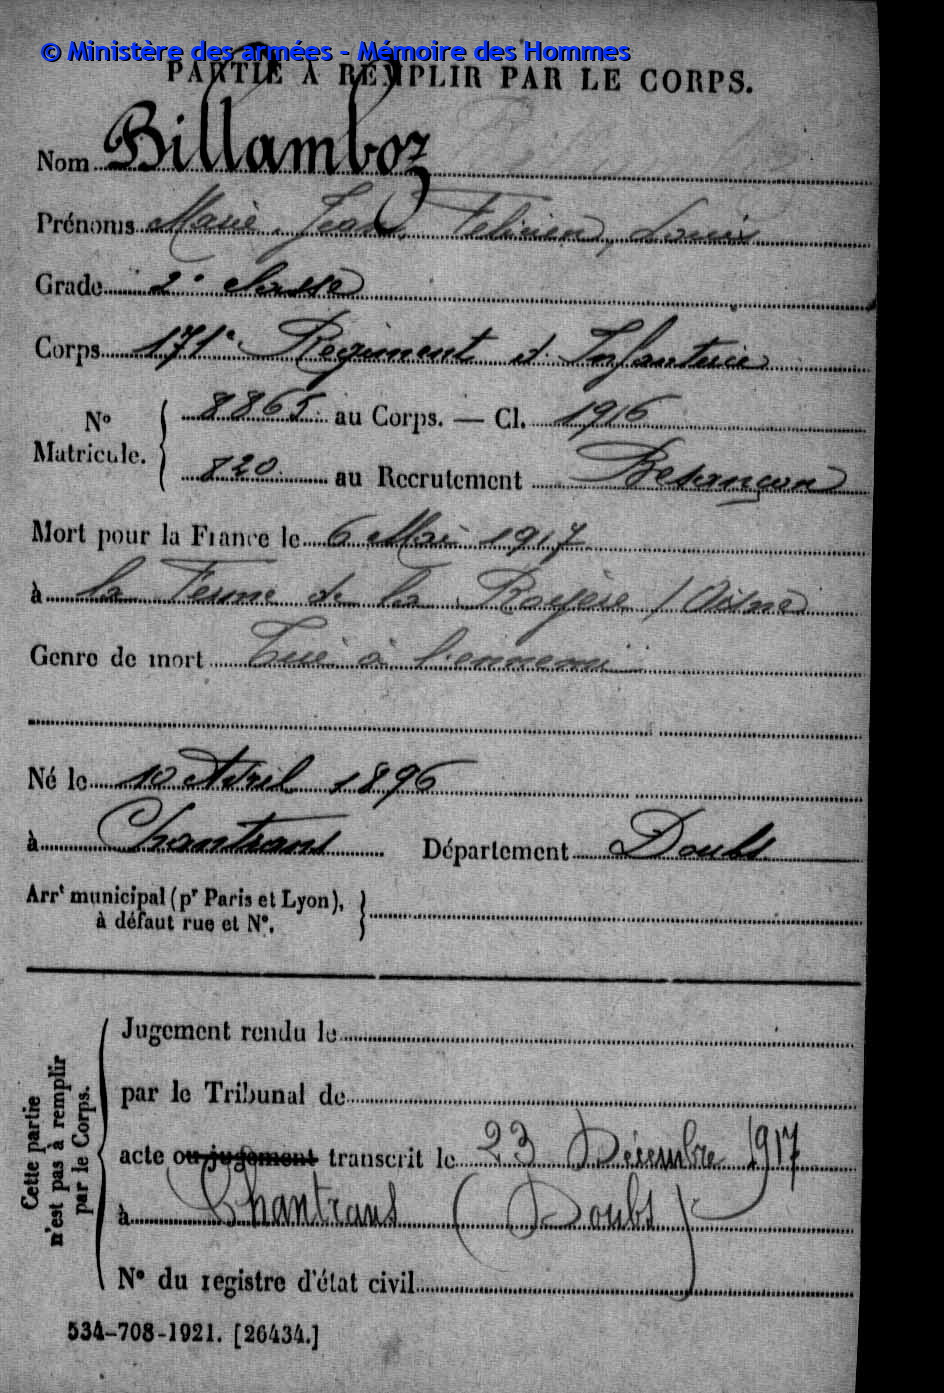 © Ministère des armées - Mémoire des Hommes
PARTIE À REMPLIR PAR LE CORPS.
Nom Billamboz
Prénoms Marie, Jean, Felicien, Louis
Grade 2e classe
Corps 171e Régiment d'Infanterie
N° Matricule. { 8865 au Corps. — Cl. 1916
820 au Recrutement Besançon
Mort pour la France le 6 Mai 1917
à la Ferme de la Royère (Aisne)
Genre de mort Tué à l'ennemi
Né le 10 Avril 1896
à Chantrans Département Doubs
Arrt municipal (pr Paris et Lyon), }
à défaut rue et N°.
Cette partie n'est pas à remplir par le Corps.
Jugement rendu le
par le Tribunal de
acte ou jugement transcrit le 23 Décembre 1917
à Chantrans (Doubs)
N° du registre d'état civil
534-708-1921. [26434.]